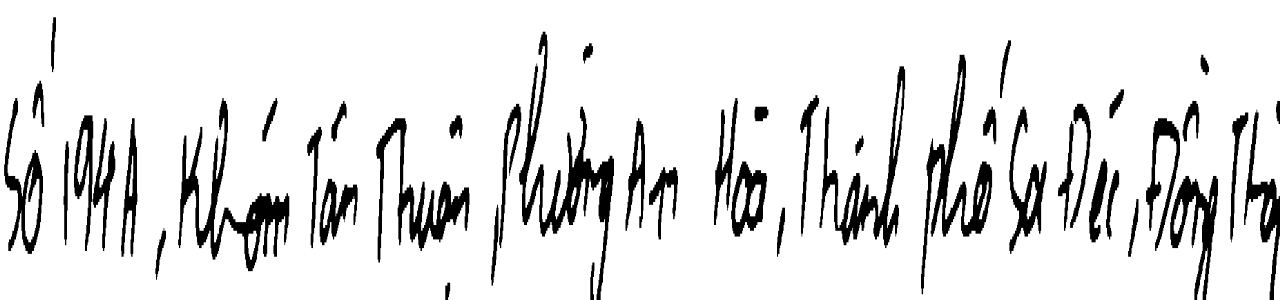 Số 194A, Khóm Tân Thuận, Phường An Hoà, Thành phố Sa Đéc, Đồng Thá